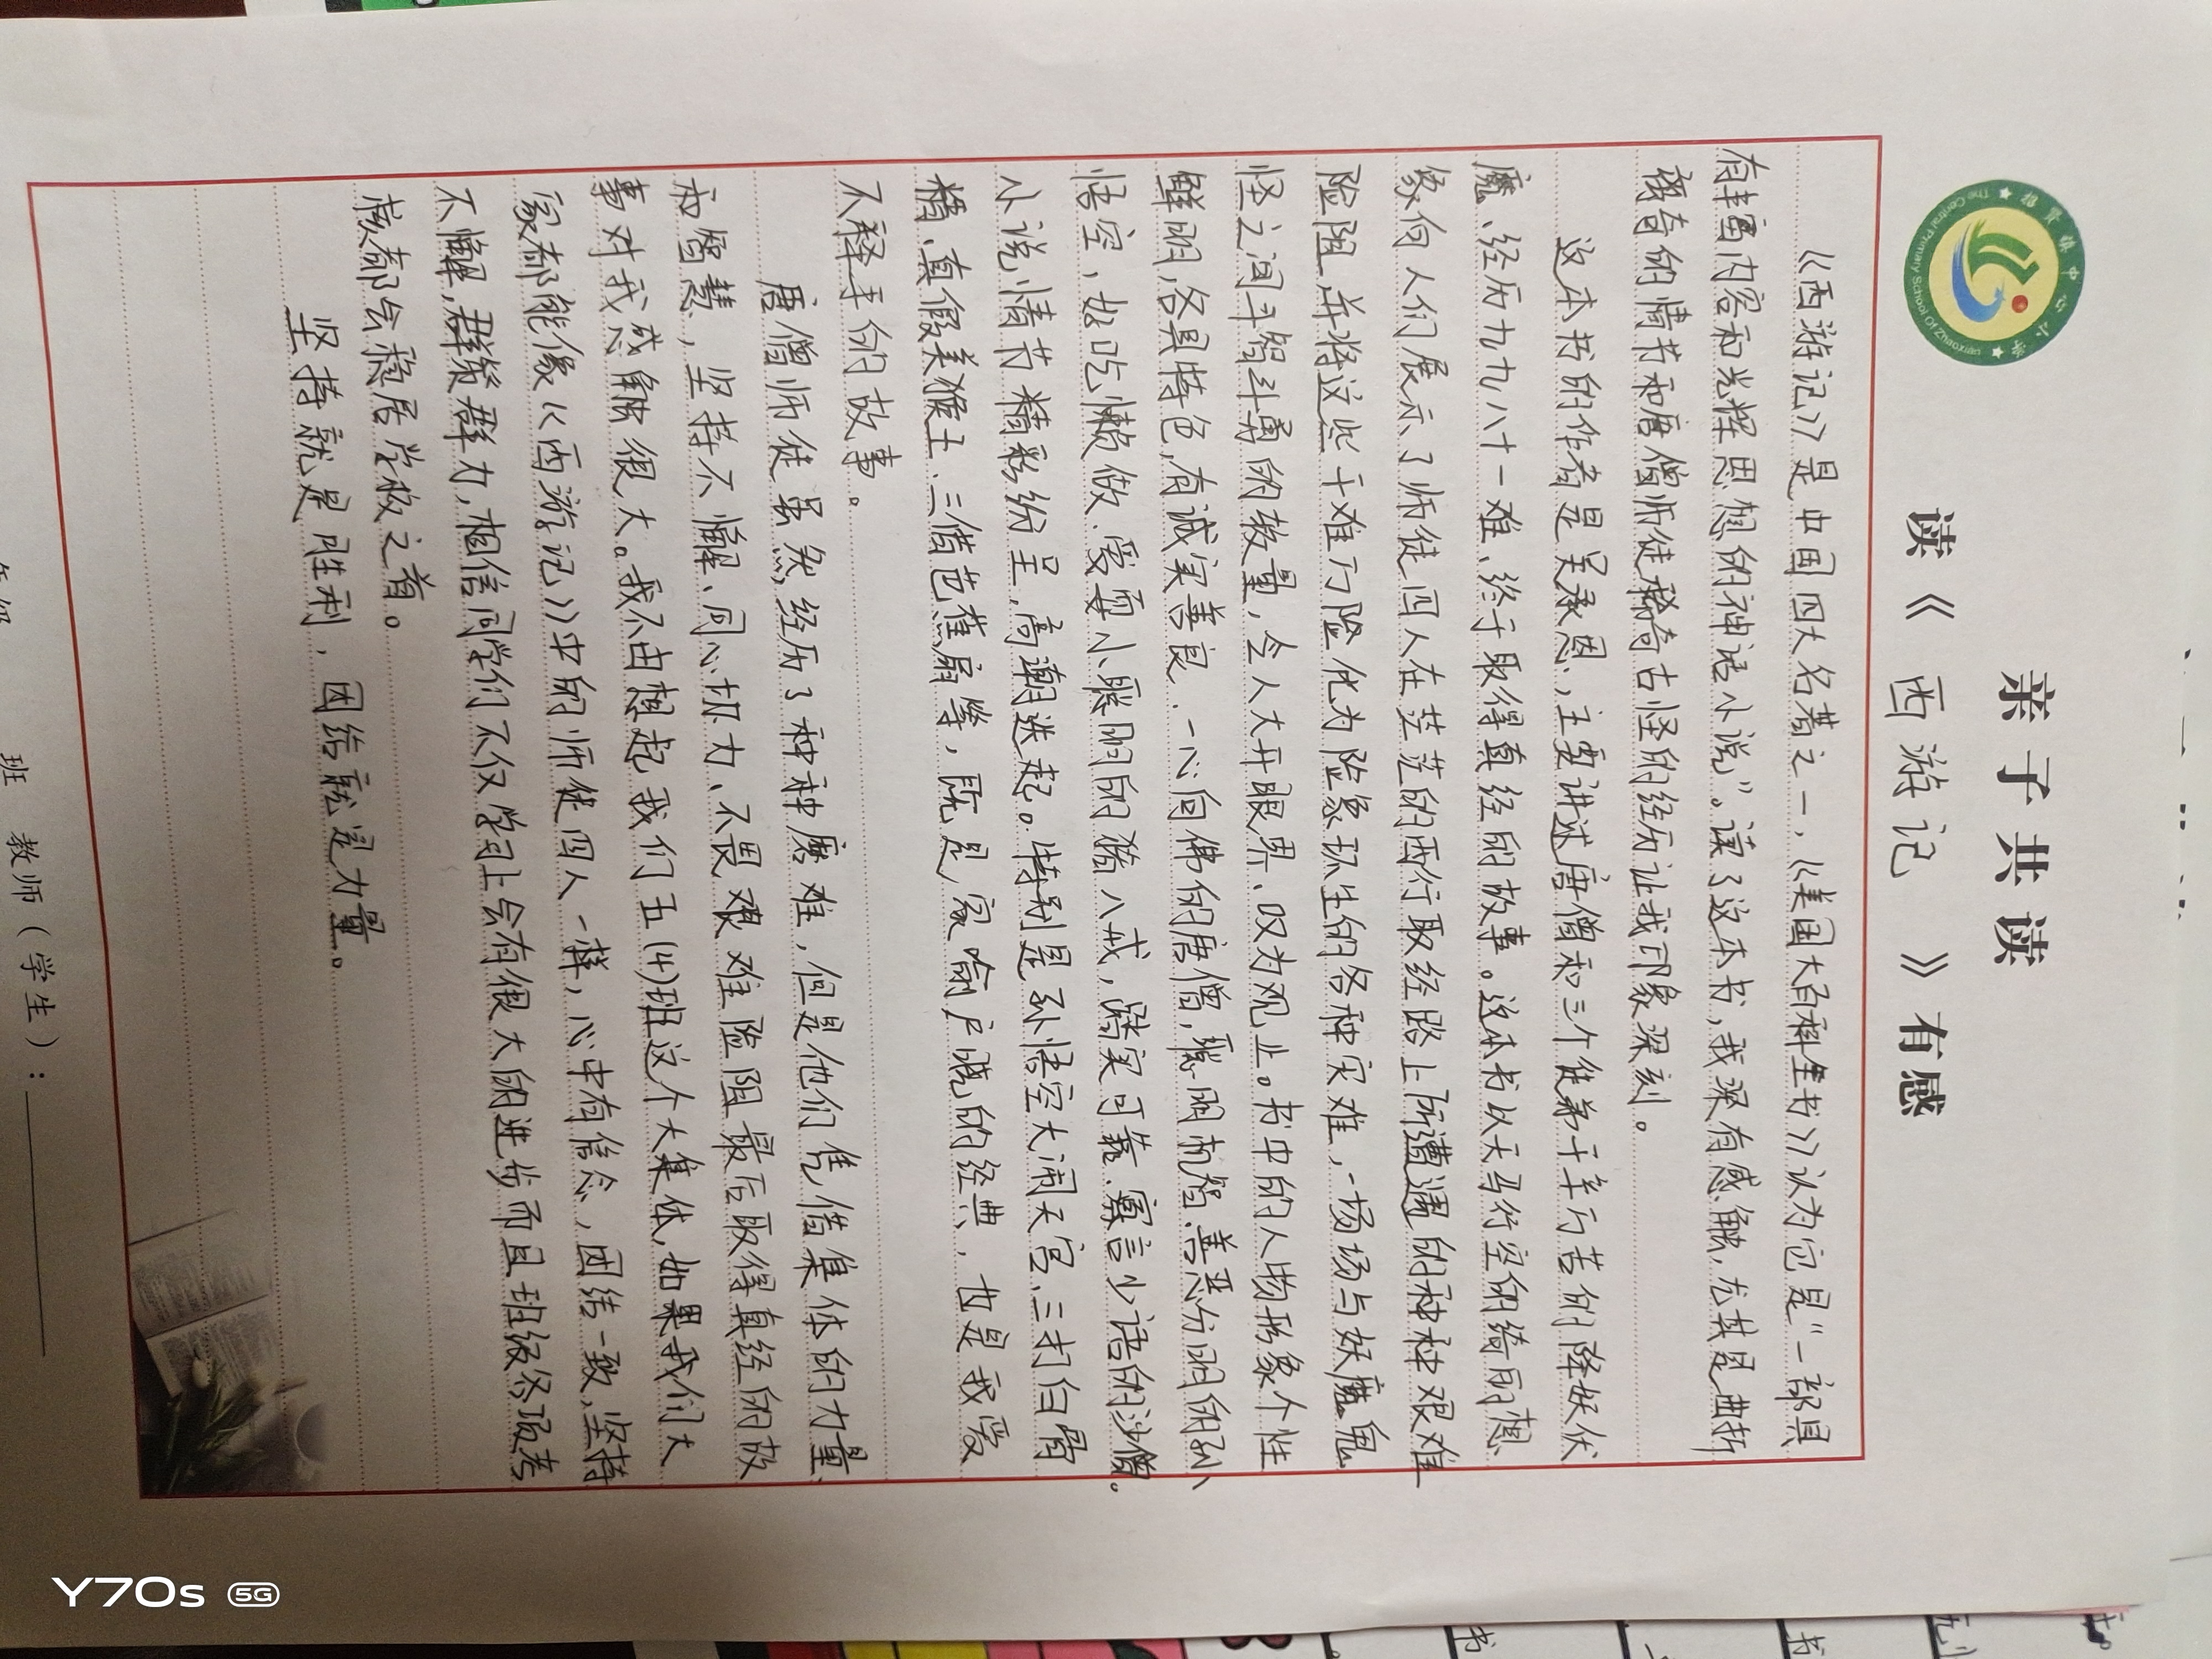 招贤镇中心小学
The Central Primary School Of Zhaoxian
亲子共读
读《 西游记 》有感
《西游记》是中国四大名著之一，《美国大百科全书》认为它是“一部具
有丰富内容和光辉思想的神话小说”。读了这本书，我深有感触，尤其是曲折
离奇的情节和唐僧师徒稀奇古怪的经历让我印象深刻。
这本书的作者是吴承恩，主要讲述唐僧和三个徒弟千辛万苦的降妖伏
魔、经历九九八十一难、终于取得真经的故事。这本书以天马行空的绮丽想
象向人们展示了师徒四人在茫茫的西行取经路上所遭遇的种种艰难
险阻，并将这些千难万险化为险象环生的各种灾难，一场场与妖魔鬼
怪之间斗智斗勇的较量，令人大开眼界、叹为观止。书中的人物形象个性
鲜明，各具特色，有诚实善良、一心向佛的唐僧，聪明机智、善恶分明的孙
悟空，好吃懒做、爱耍小聪明的猪八戒，踏实可靠、寡言少语的沙僧。
小说情节精彩纷呈，高潮迭起。特别是孙悟空大闹天宫、三打白骨
精、真假美猴王、三借芭蕉扇等，既是家喻户晓的经典，也是我爱
不释手的故事。
唐僧师徒虽然经历了种种磨难，但是他们凭借集体的力量
和智慧，坚持不懈、同心协力、不畏艰难险阻最后取得真经的故
事对我感触很大。我不由想起我们五(4)班这个大集体，如果我们大
家都能像《西游记》中的师徒四人一样，心中有信念，团结一致，坚持
不懈，群策群力，相信同学们不仅学习上会有很大的进步而且班级各项考
核都会稳居学校之首。
坚持就是胜利，团结就是力量。
年级 班 教师（学生）：
Y70s 5G
书
书